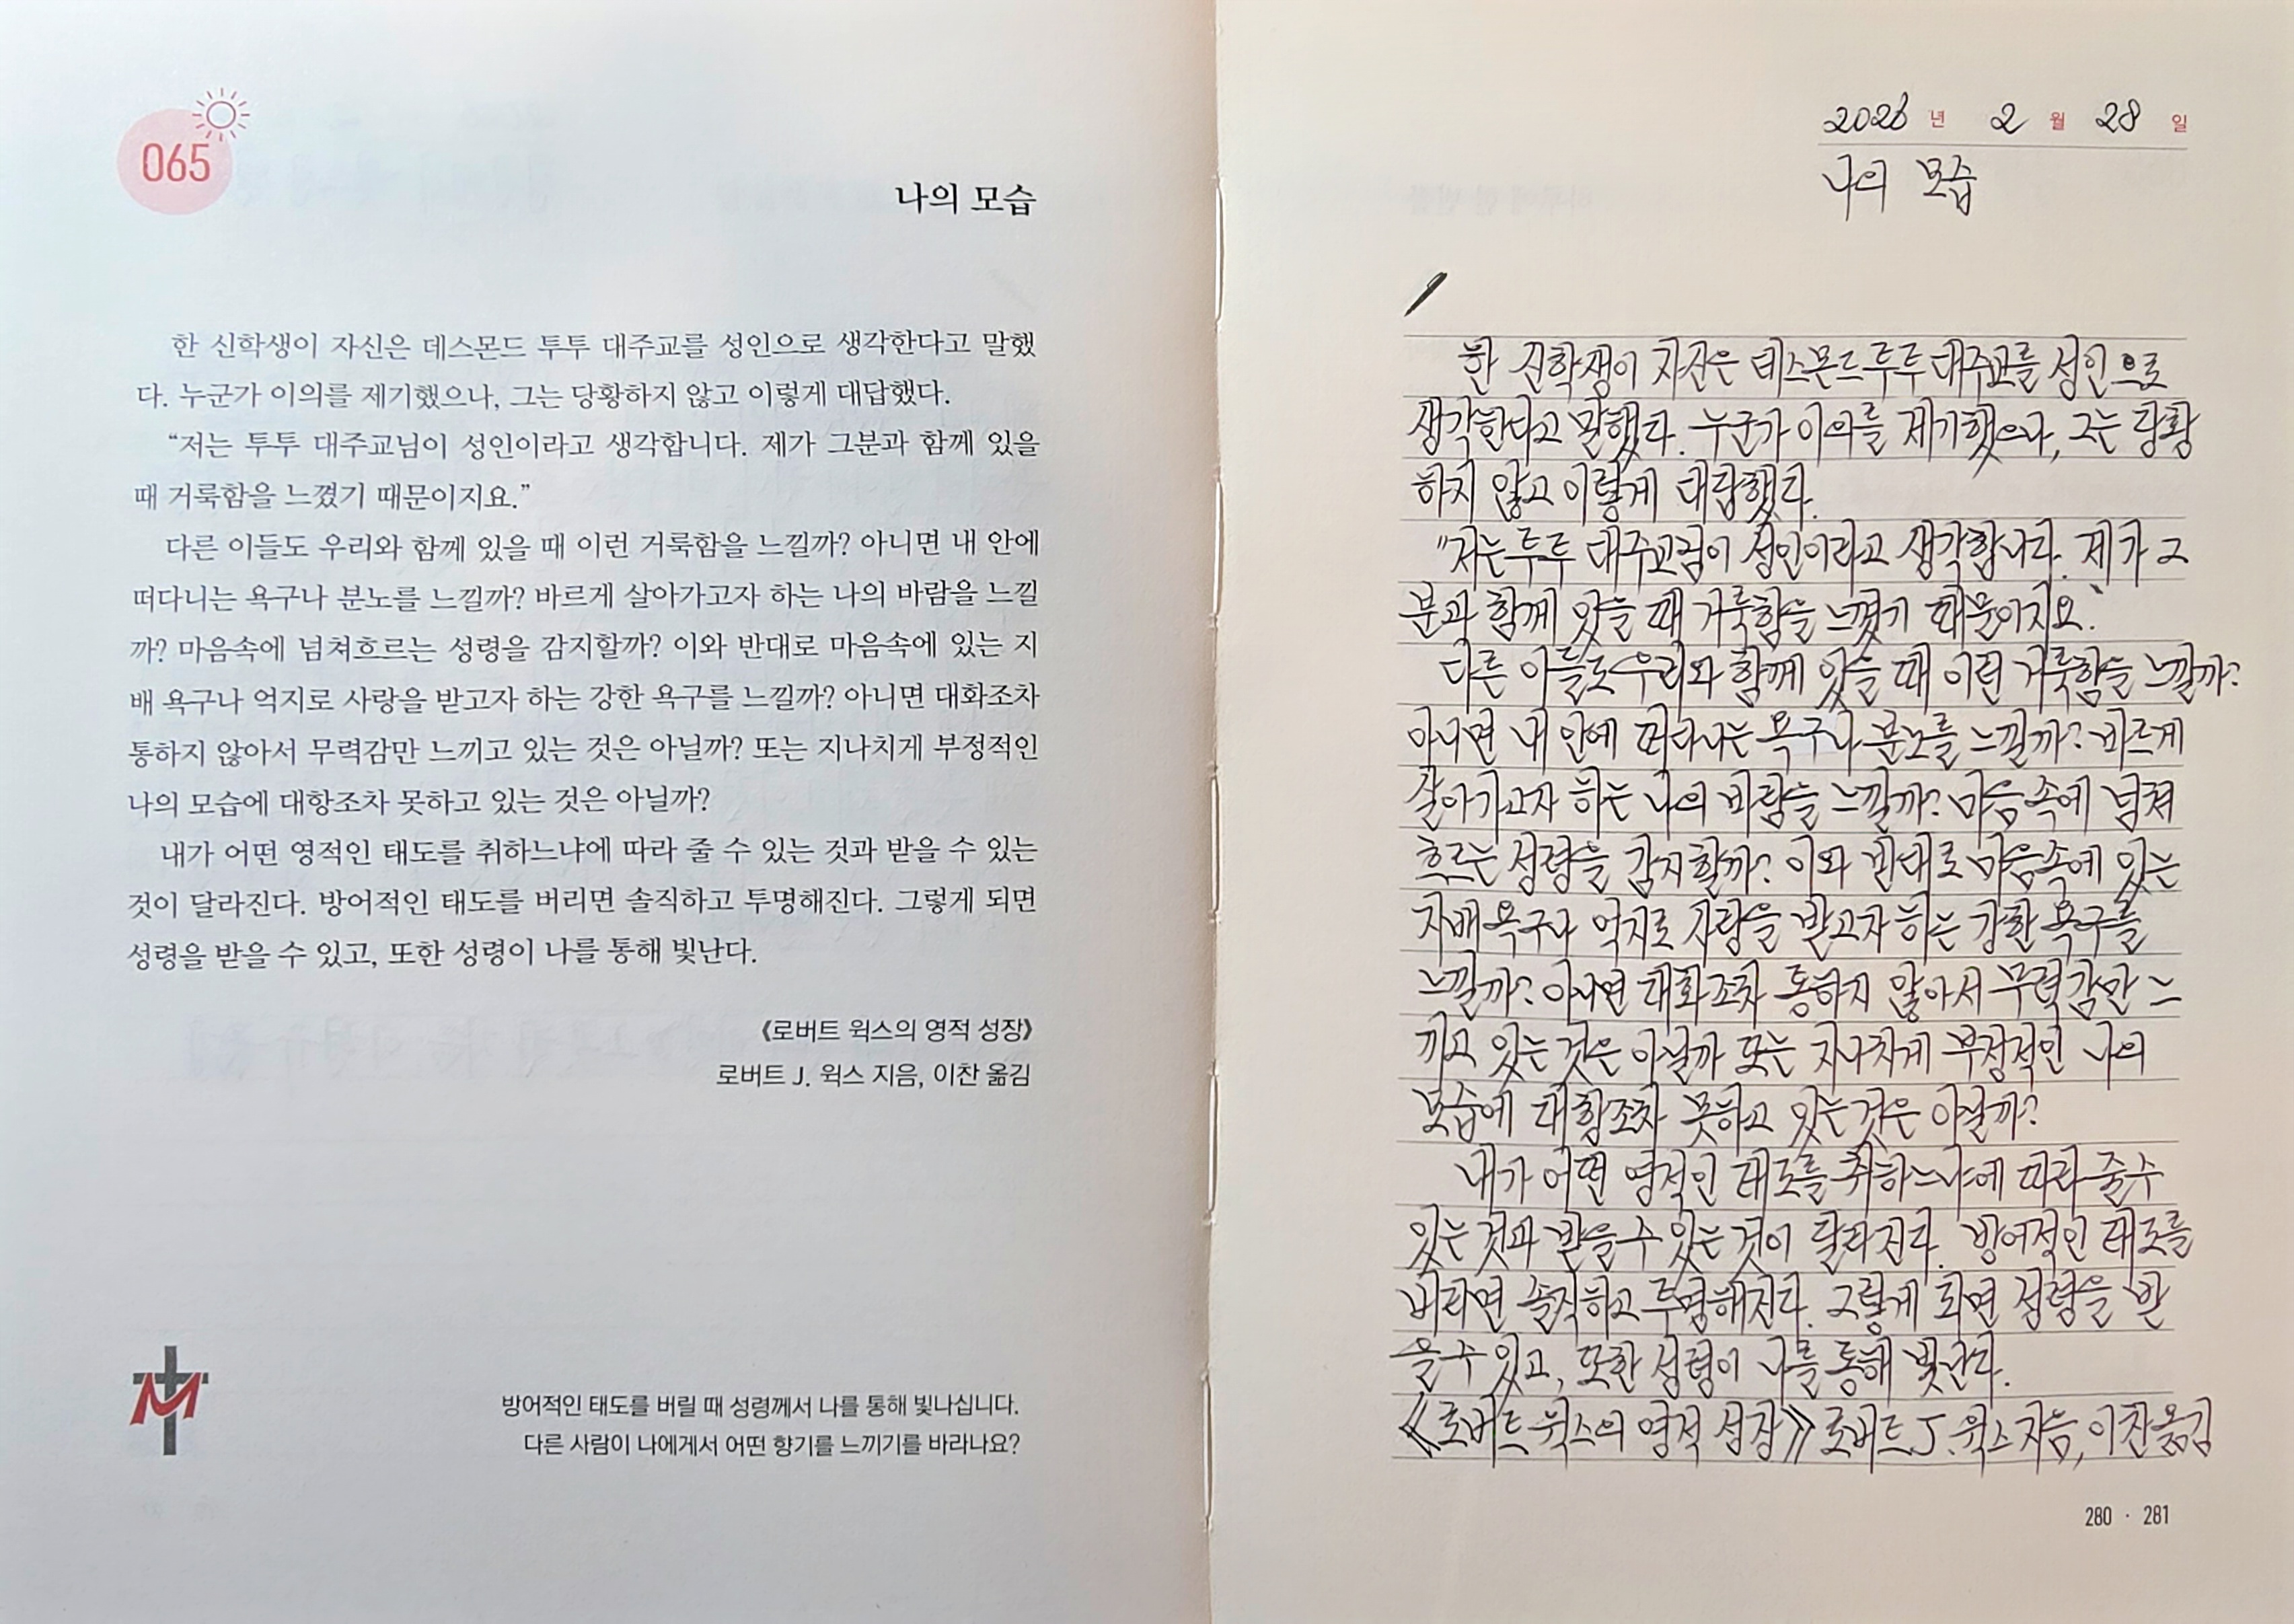 065
나의 모습
한 신학생이 자신은 데스몬드 투투 대주교를 성인으로 생각한다고 말했
다. 누군가 이의를 제기했으나, 그는 당황하지 않고 이렇게 대답했다.
“저는 투투 대주교님이 성인이라고 생각합니다. 제가 그분과 함께 있을
때 거룩함을 느꼈기 때문이지요.”
다른 이들도 우리와 함께 있을 때 이런 거룩함을 느낄까? 아니면 내 안에
떠다니는 욕구나 분노를 느낄까? 바르게 살아가고자 하는 나의 바람을 느낄
까? 마음속에 넘쳐흐르는 성령을 감지할까? 이와 반대로 마음속에 있는 지
배 욕구나 억지로 사랑을 받고자 하는 강한 욕구를 느낄까? 아니면 대화조차
통하지 않아서 무력감만 느끼고 있는 것은 아닐까? 또는 지나치게 부정적인
나의 모습에 대항조차 못하고 있는 것은 아닐까?
내가 어떤 영적인 태도를 취하느냐에 따라 줄 수 있는 것과 받을 수 있는
것이 달라진다. 방어적인 태도를 버리면 솔직하고 투명해진다. 그렇게 되면
성령을 받을 수 있고, 또한 성령이 나를 통해 빛난다.
《로버트 윅스의 영적 성장》
로버트 J. 윅스 지음, 이찬 옮김
방어적인 태도를 버릴 때 성령께서 나를 통해 빛나십니다.
다른 사람이 나에게서 어떤 향기를 느끼기를 바라나요?
2026년 2월 28일
나의 모습
한 신학생이 자신은 데스몬드 투투 대주교를 성인으로
생각한다고 말했다. 누군가 이의를 제기했으나, 그는 당황
하지 않고 이렇게 대답했다.
"저는 투투 대주교님이 성인이라고 생각합니다. 제가 그
분과 함께 있을 때 거룩함을 느꼈기 때문이지요."
다른 이들도 우리와 함께 있을 때 이런 거룩함을 느낄까?
아니면 내 안에 떠다니는 욕구나 분노를 느낄까? 바르게
살아가고자 하는 나의 바람을 느낄까? 마음속에 넘쳐
흐르는 성령을 감지할까? 이와 반대로 마음속에 있는
지배 욕구나 억지로 사랑을 받고자 하는 강한 욕구를
느낄까? 아니면 대화조차 통하지 않아서 무력감만 느
끼고 있는 것은 아닐까 또는 지나치게 부정적인 나의
모습에 대항조차 못하고 있는 것은 아닐까?
내가 어떤 영적인 태도를 취하느냐에 따라 줄 수
있는 것과 받을 수 있는 것이 달라진다. 방어적인 태도를
버리면 솔직하고 투명해진다. 그렇게 되면 성령을 받
을 수 있고, 또한 성령이 나를 통해 빛난다.
《로버트 윅스의 영적 성장》 로버트 J. 윅스 지음, 이찬 옮김
280 · 281